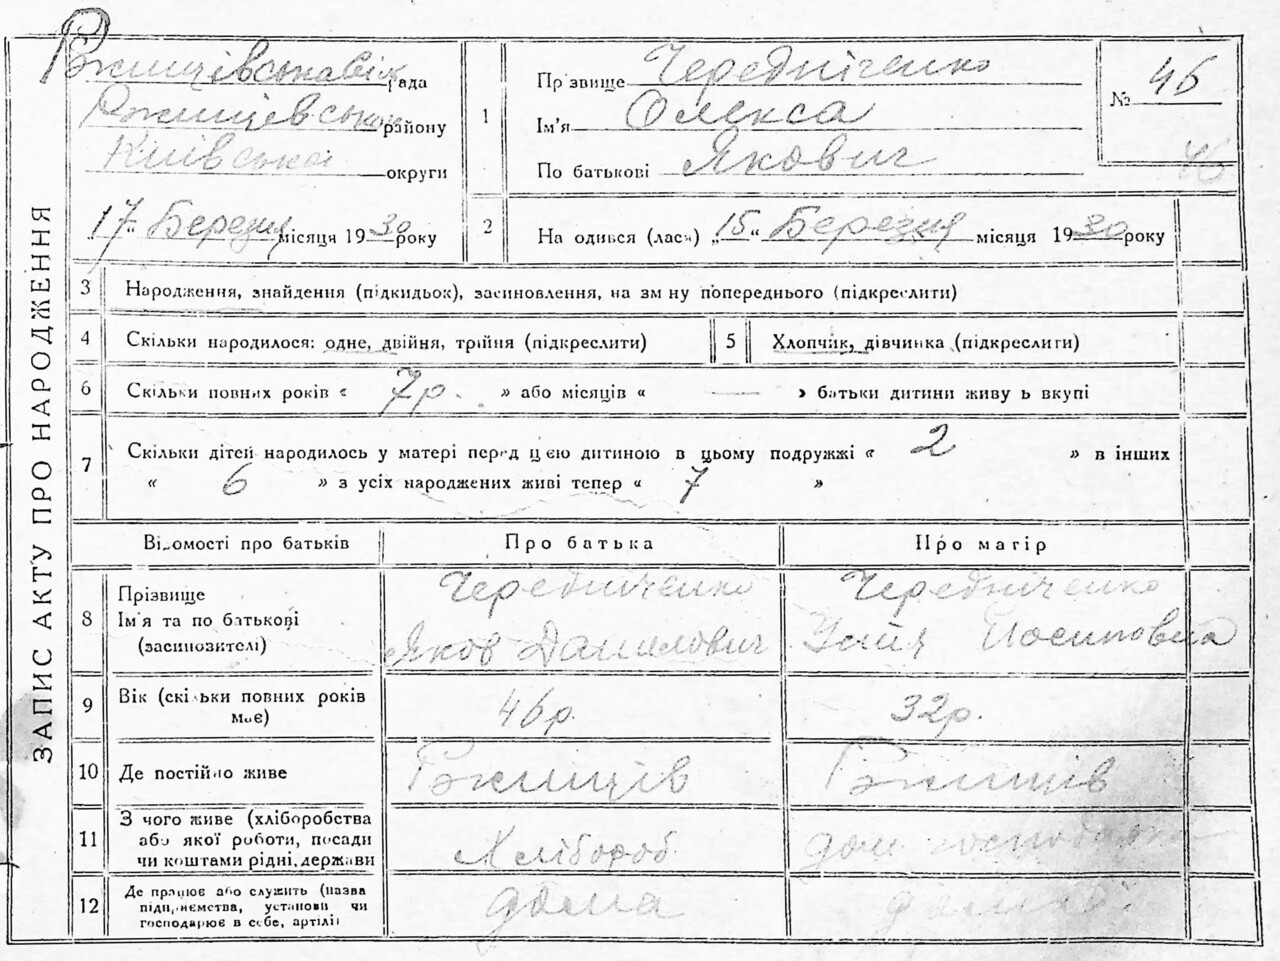 ЗАПИС АКТУ ПРО НАРОДЖЕННЯ
Ржищівська рада
Ржищівського району
Київської округи
„17“ Березня місяця 1930 року
1
Прізвище Чередніченко
Ім'я Олекса
По батькові Якович
№ 46
46
2
На одився (лася) „15“ Березня місяця 1930 року
3 Народження, знайдення (підкидьок), засиновлення, на зм ну попереднього (підкреслити)
4 Скільки народилося: одне, двійня, трійня (підкреслити)
5 Хлопчик, дівчинка (підкреслити)
6 Скільки повних років « 7р. » або місяців « — » батьки дитини живу ь вкупі
7 Скільки дітей народилось у матері перед цією дитиною в цьому подружжі « 2 » в інших
« 6 » з усіх народжених живі тепер « 7 »
Відомості про батьків Про батька Про матір
8 Прізвище
Ім'я та по батькові
(засиновителі)
Чередніченко
Яков Данилович
Чередніченко
Устя Йосиповна
9 Вік (скі ьки повних років має) 46р. 32р.
10 Де постійно живе Ржищів Ржищів
11 З чого живе (хліборобства
або якої роботи, посади
чи коштами рідні, держави
Хлібороб
дом господарка
12 Де працює або служить (назва
підприємства, установи чи
господарює в себе, артілі)
дома
дома